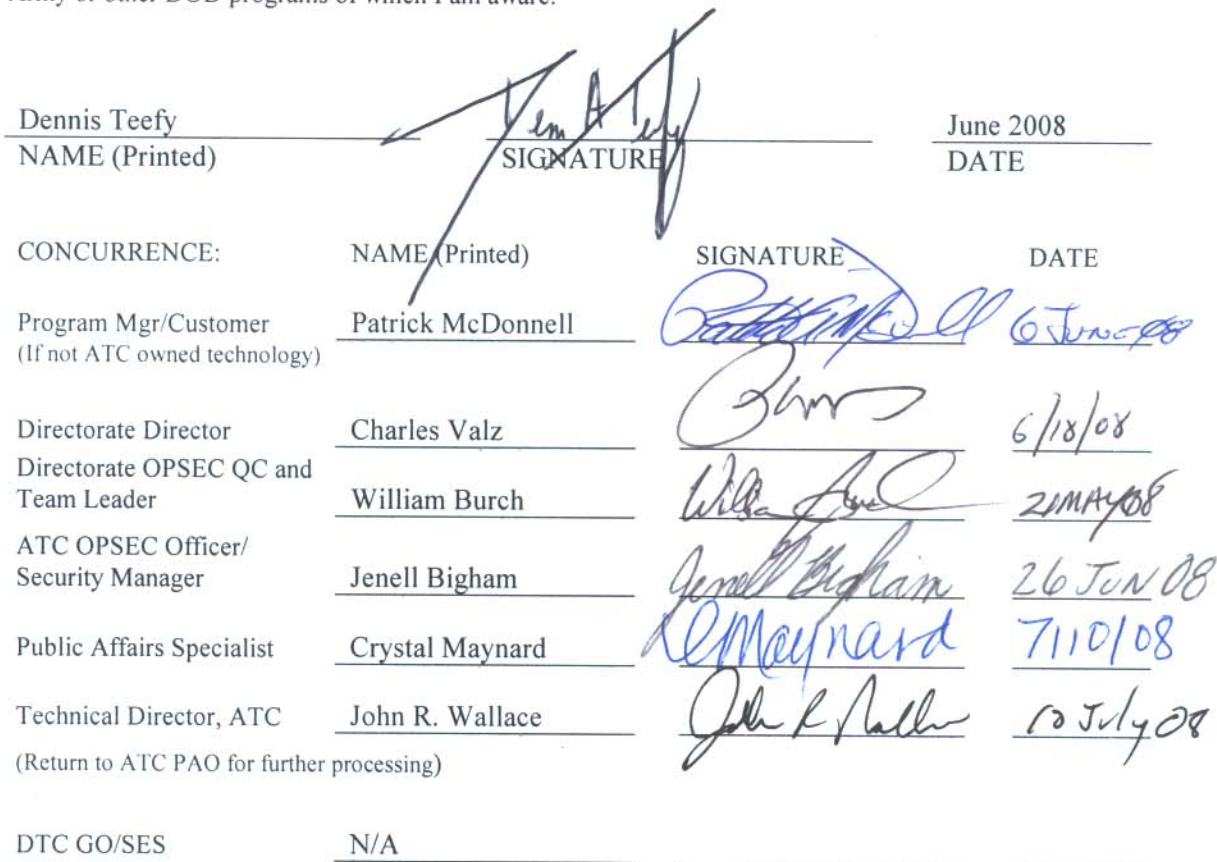 Army or other DOD programs of which I am aware.
Dennis Teefy June 2008
NAME (Printed) SIGNATURE DATE
CONCURRENCE: NAME (Printed) SIGNATURE DATE
Program Mgr/Customer Patrick McDonnell 6 JUNE 08
(If not ATC owned technology)
Directorate Director Charles Valz 6/18/08
Directorate OPSEC QC and
Team Leader William Burch MAY 08
ATC OPSEC Officer/
Security Manager Jenell Bigham Jenell Bigham 26 JUN 08
Public Affairs Specialist Crystal Maynard CMaynard 7/10/08
Technical Director, ATC John R. Wallace 10 July 08
(Return to ATC PAO for further processing)
DTC GO/SES N/A